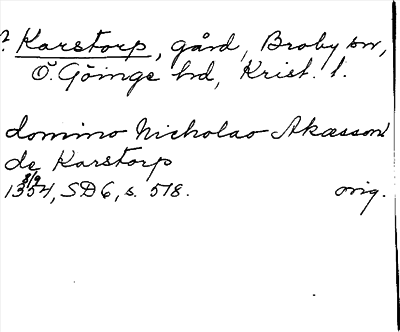 ? Karstorp, gård, Broby sn,
Ö. Göinge hd, Krist. l.
domino Nicholao Akæsson
de Karstorp
8/9
1354, SD 6, s. 518. orig.